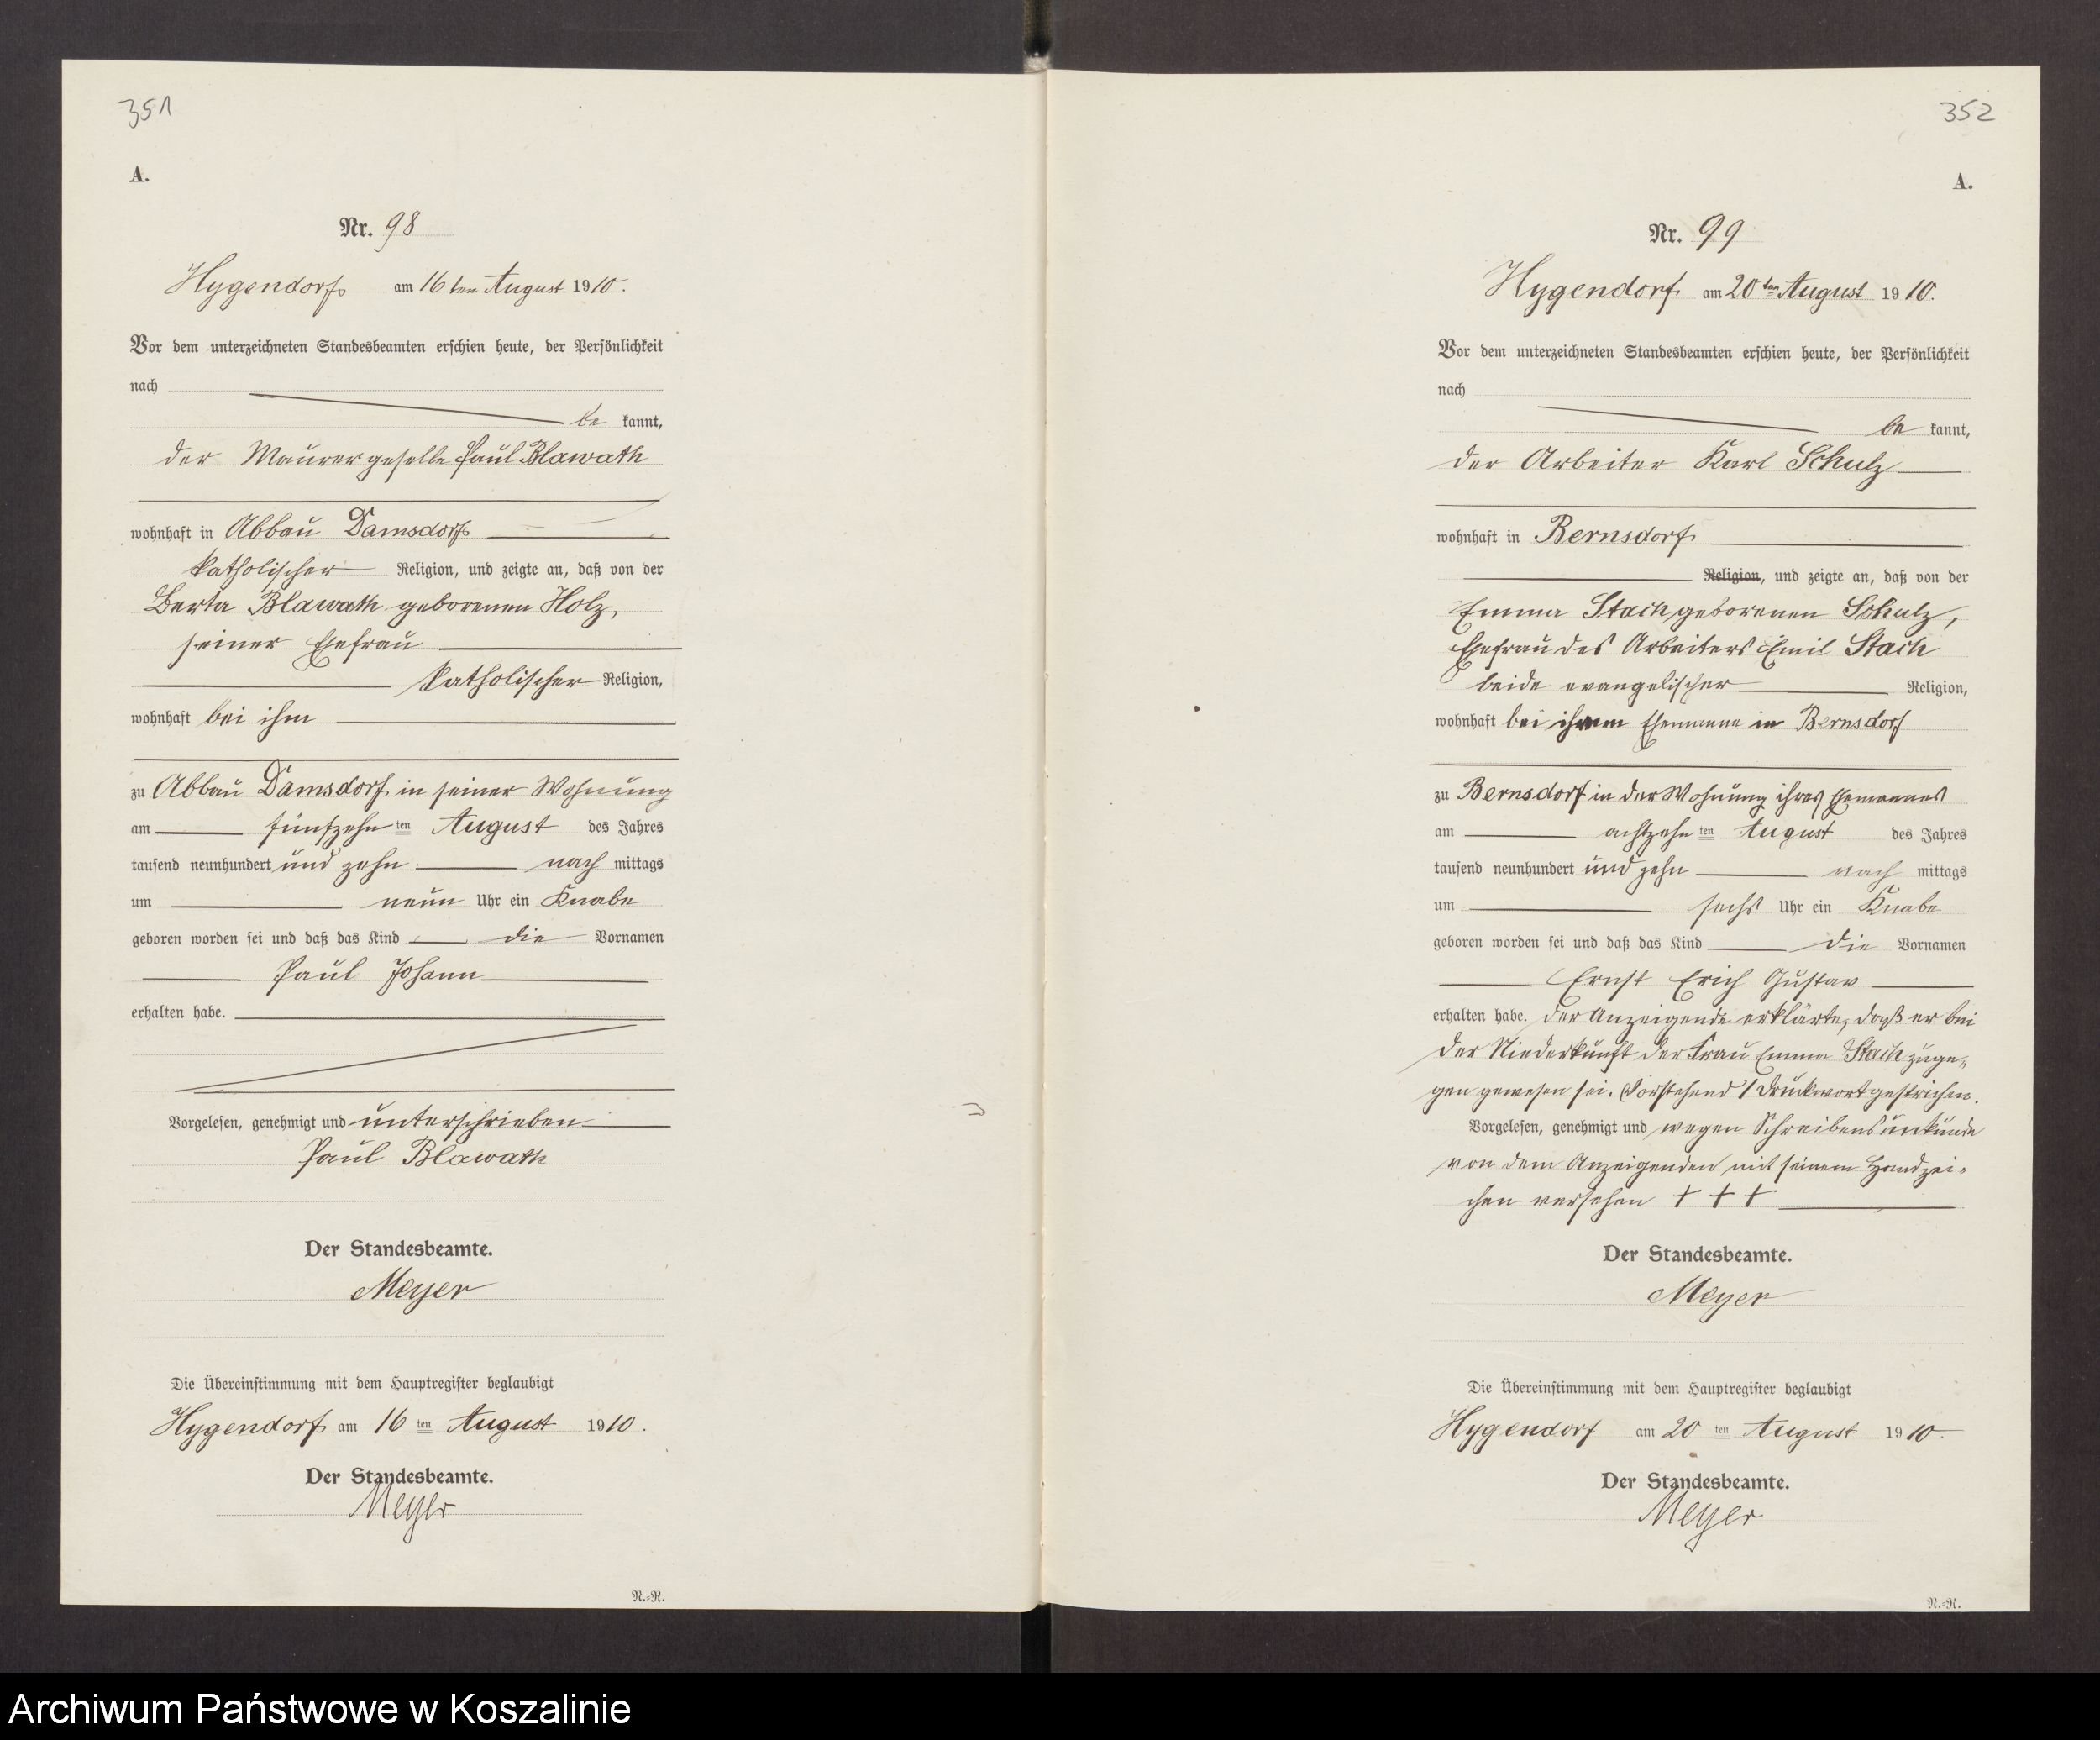 351
A.
Nr. 98
Hygendorf am 16ten August 1910.
Vor dem unterzeichneten Standesbeamten erschien heute, der Persönlichkeit
nach
be kannt,
der Maurergeselle Paul Blawath
wohnhaft in Abbau Damsdorf
katholischer Religion, und zeigte an, daß von der
Berta Blawath geborenen Holz,
seiner Ehefrau
katholischer Religion,
wohnhaft bei ihm
zu Abbau Damsdorf in seiner Wohnung
am fünfzehn ten August des Jahres
tausend neunhundert und zehn nach mittags
um neun Uhr ein Knabe
geboren worden sei und daß das Kind die Vornamen
Paul Johann
erhalten habe.
Vorgelesen, genehmigt und unterschrieben
Paul Blawath
Der Standesbeamte.
Meyer
Die Übereinstimmung mit dem Hauptregister beglaubigt
Hygendorf am 16 ten August 1910.
Der Standesbeamte.
Meyer
N.=R.
352
A.
Nr. 99
Hygendorf am 20ten August 1910.
Vor dem unterzeichneten Standesbeamten erschien heute, der Persönlichkeit
nach
be kannt,
der Arbeiter Karl Schulz
wohnhaft in Bernsdorf
Religion, und zeigte an, daß von der
Emma Stach geborenen Schulz,
Ehefrau des Arbeiters Emil Stach
beide evangelischer Religion,
wohnhaft bei ihrem Ehemanne in Bernsdorf
zu Bernsdorf in der Wohnung ihres Ehemannes
am achtzehn ten August des Jahres
tausend neunhundert und zehn nach mittags
um sechs Uhr ein Knabe
geboren worden sei und daß das Kind die Vornamen
Ernst Erich Gustav
erhalten habe. Der Anzeigende erklärte, daß er bei
der Niederkunft der Frau Emma Stach zuge=
gen gewesen sei. Vorstehend 1 Druckwort gestrichen.
Vorgelesen, genehmigt und wegen Schreibensunkunde
von dem Anzeigenden mit seinem Handzei=
chen versehen + + +
Der Standesbeamte.
Meyer
Die Übereinstimmung mit dem Hauptregister beglaubigt
Hygendorf am 20 ten August 1910.
Der Standesbeamte.
Meyer
N.=R.
Archiwum Państwowe w Koszalinie